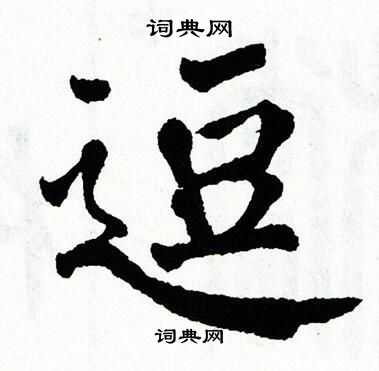 词典网
逗
词典网